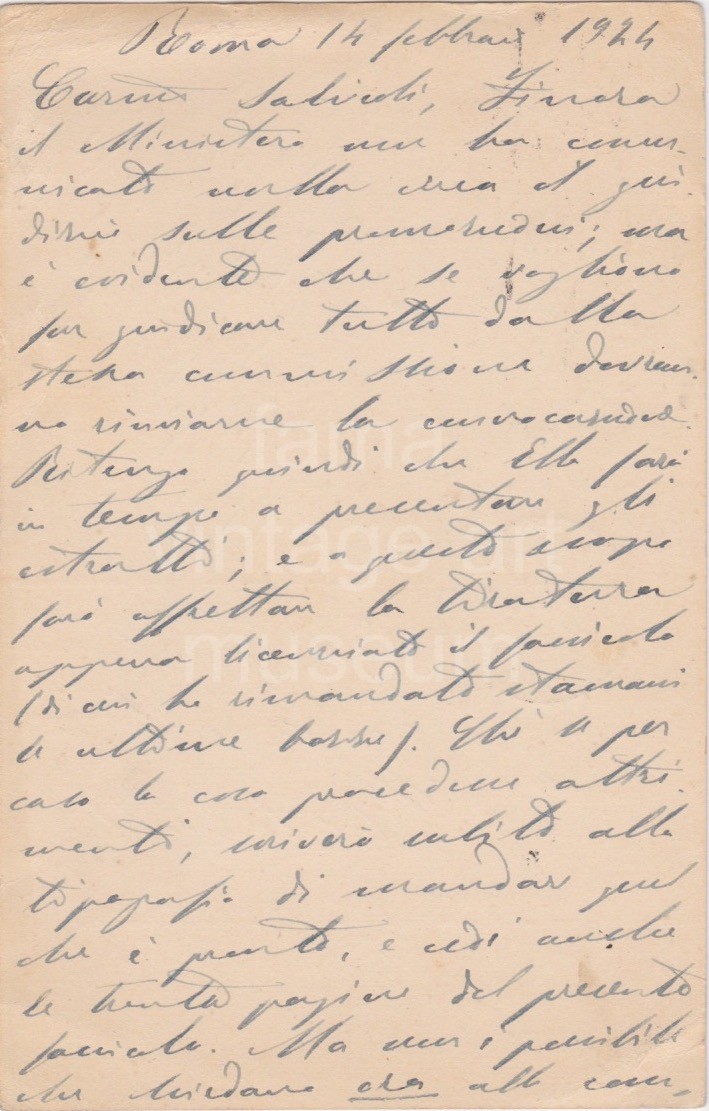 Roma 14 febbraio 1924
Finora
il Ministero non ha comu-
nicato nulla circa il giu-
dizio sulle promozioni; ma
è evidente che se vogliono
far giudicare tutto dalla
stessa commissione dovran-
no rinviarne la convocazione.
Ritengo quindi che Ella sarà
in tempo a presentare gli
estratti; e a questo scopo
farò affrettare la tiratura
appena licenziato il fascicolo
(di cui ho rimandato stamani
le ultime bozze). Che se per
caso la cosa procedesse altri-
menti, scriverò subito alla
tipografia di mandar quel
che è pronto, e così anche
le trenta pagine del presente
fascicolo. Ma non è possibile
che chiedano ora alle com-
fama
vintage art
museum